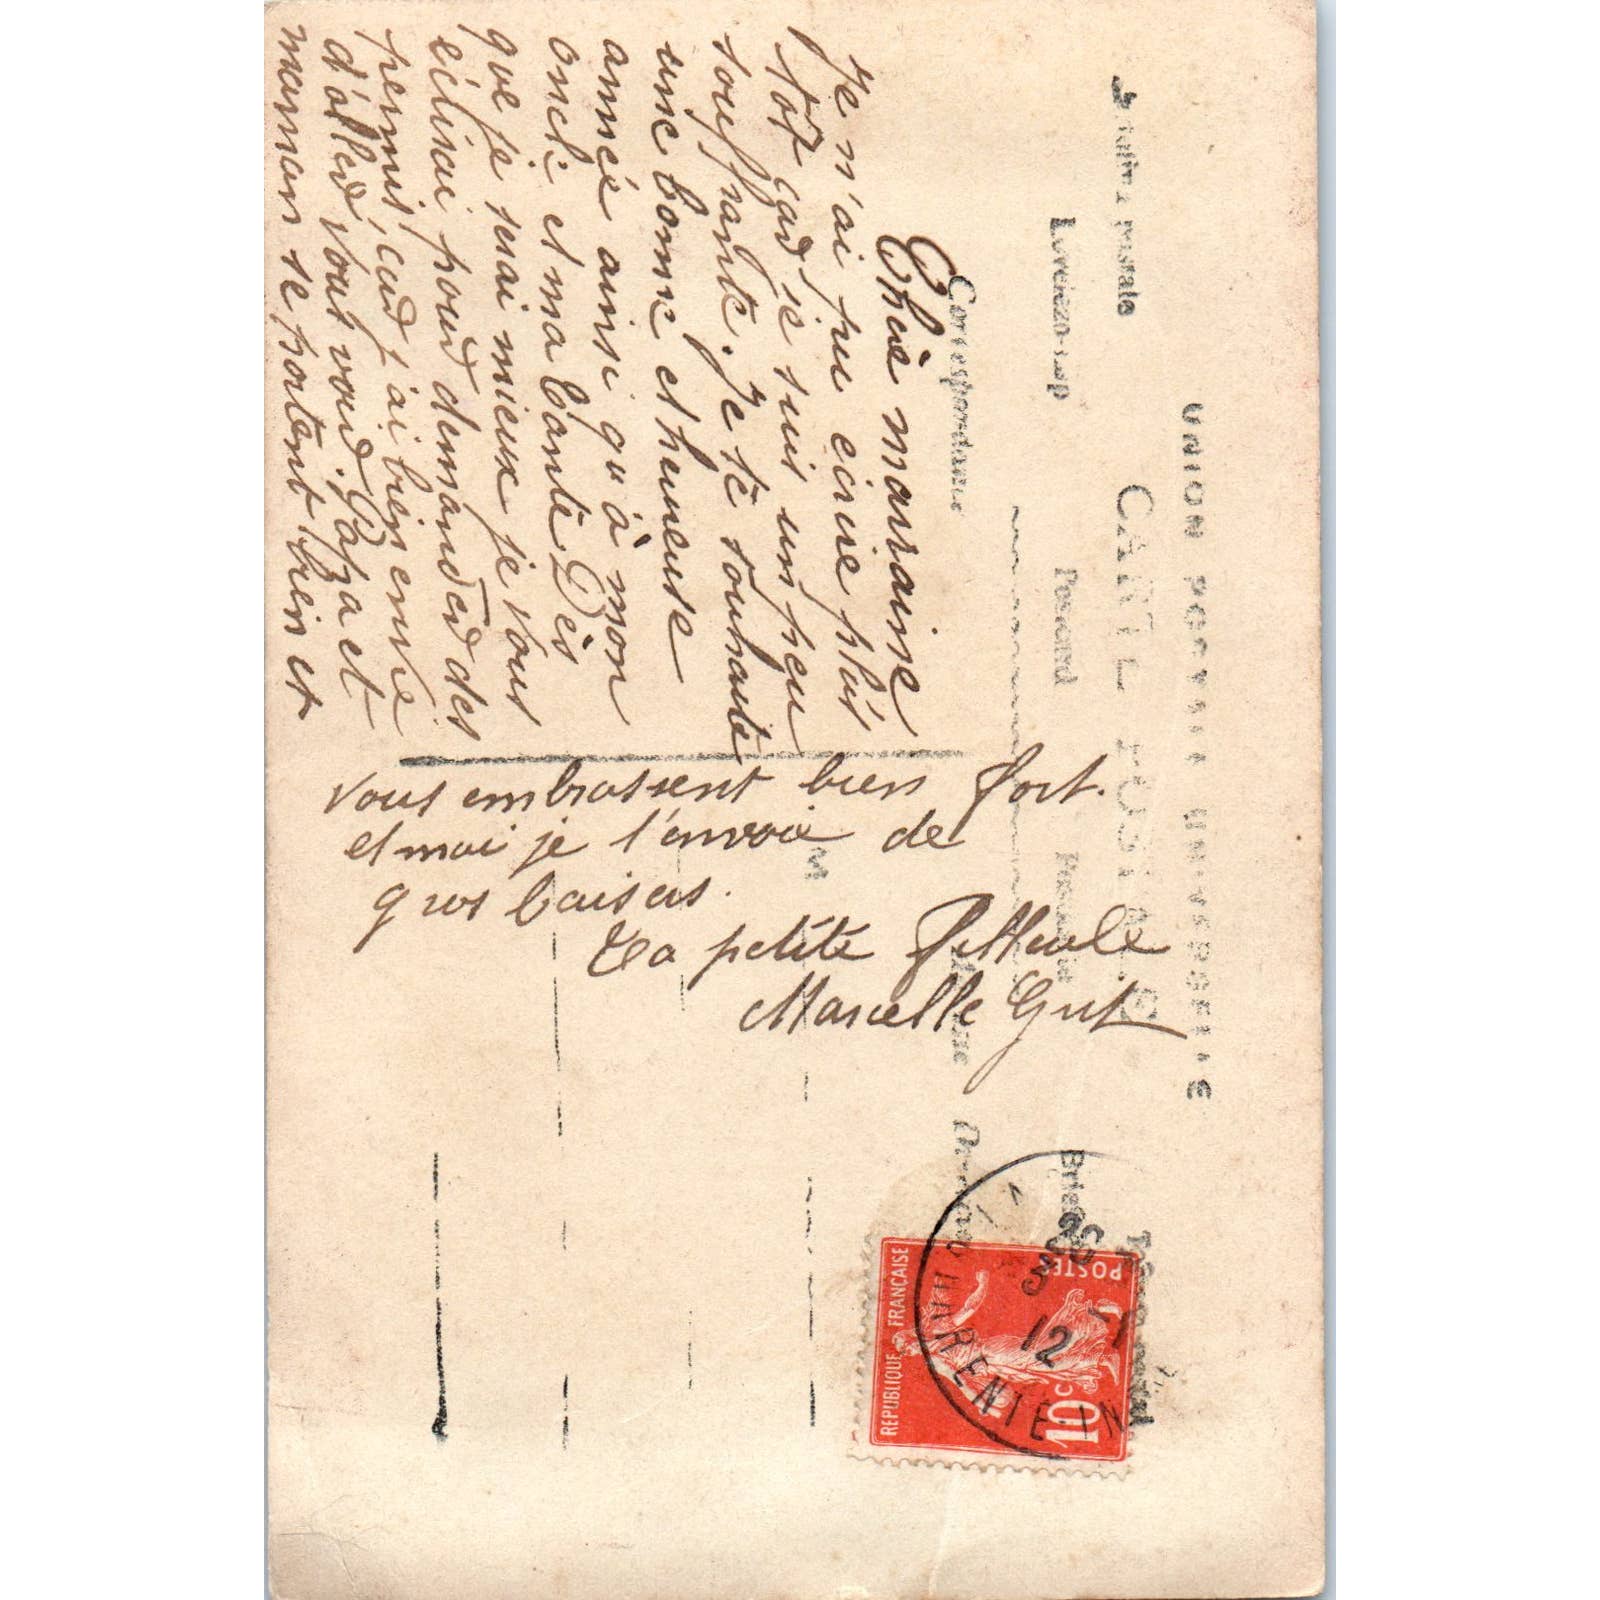 UNION POSTALE UNIVERSELLE
CARTE POSTALE
postale
Postcard
Correspondance
Chère marraine
Je n'ai pu écrire plus
tot car je suis un peu
souffrante. Je te souhaite
une bonne et heureuse
année ainsi qu'à mon
oncle et ma tante Dès
que je serai mieux je vous
écrirai pour demander des
permis, car j'ai bien envie
d'aller vous voir. Papa et
maman se portent bien et
vous embrassent bien fort.
et moi je t'envoie de
gros baisers.
Ta petite filleule
Marcelle Gut
REPUBLIQUE FRANÇAISE
POSTES
10c
3 -1
12